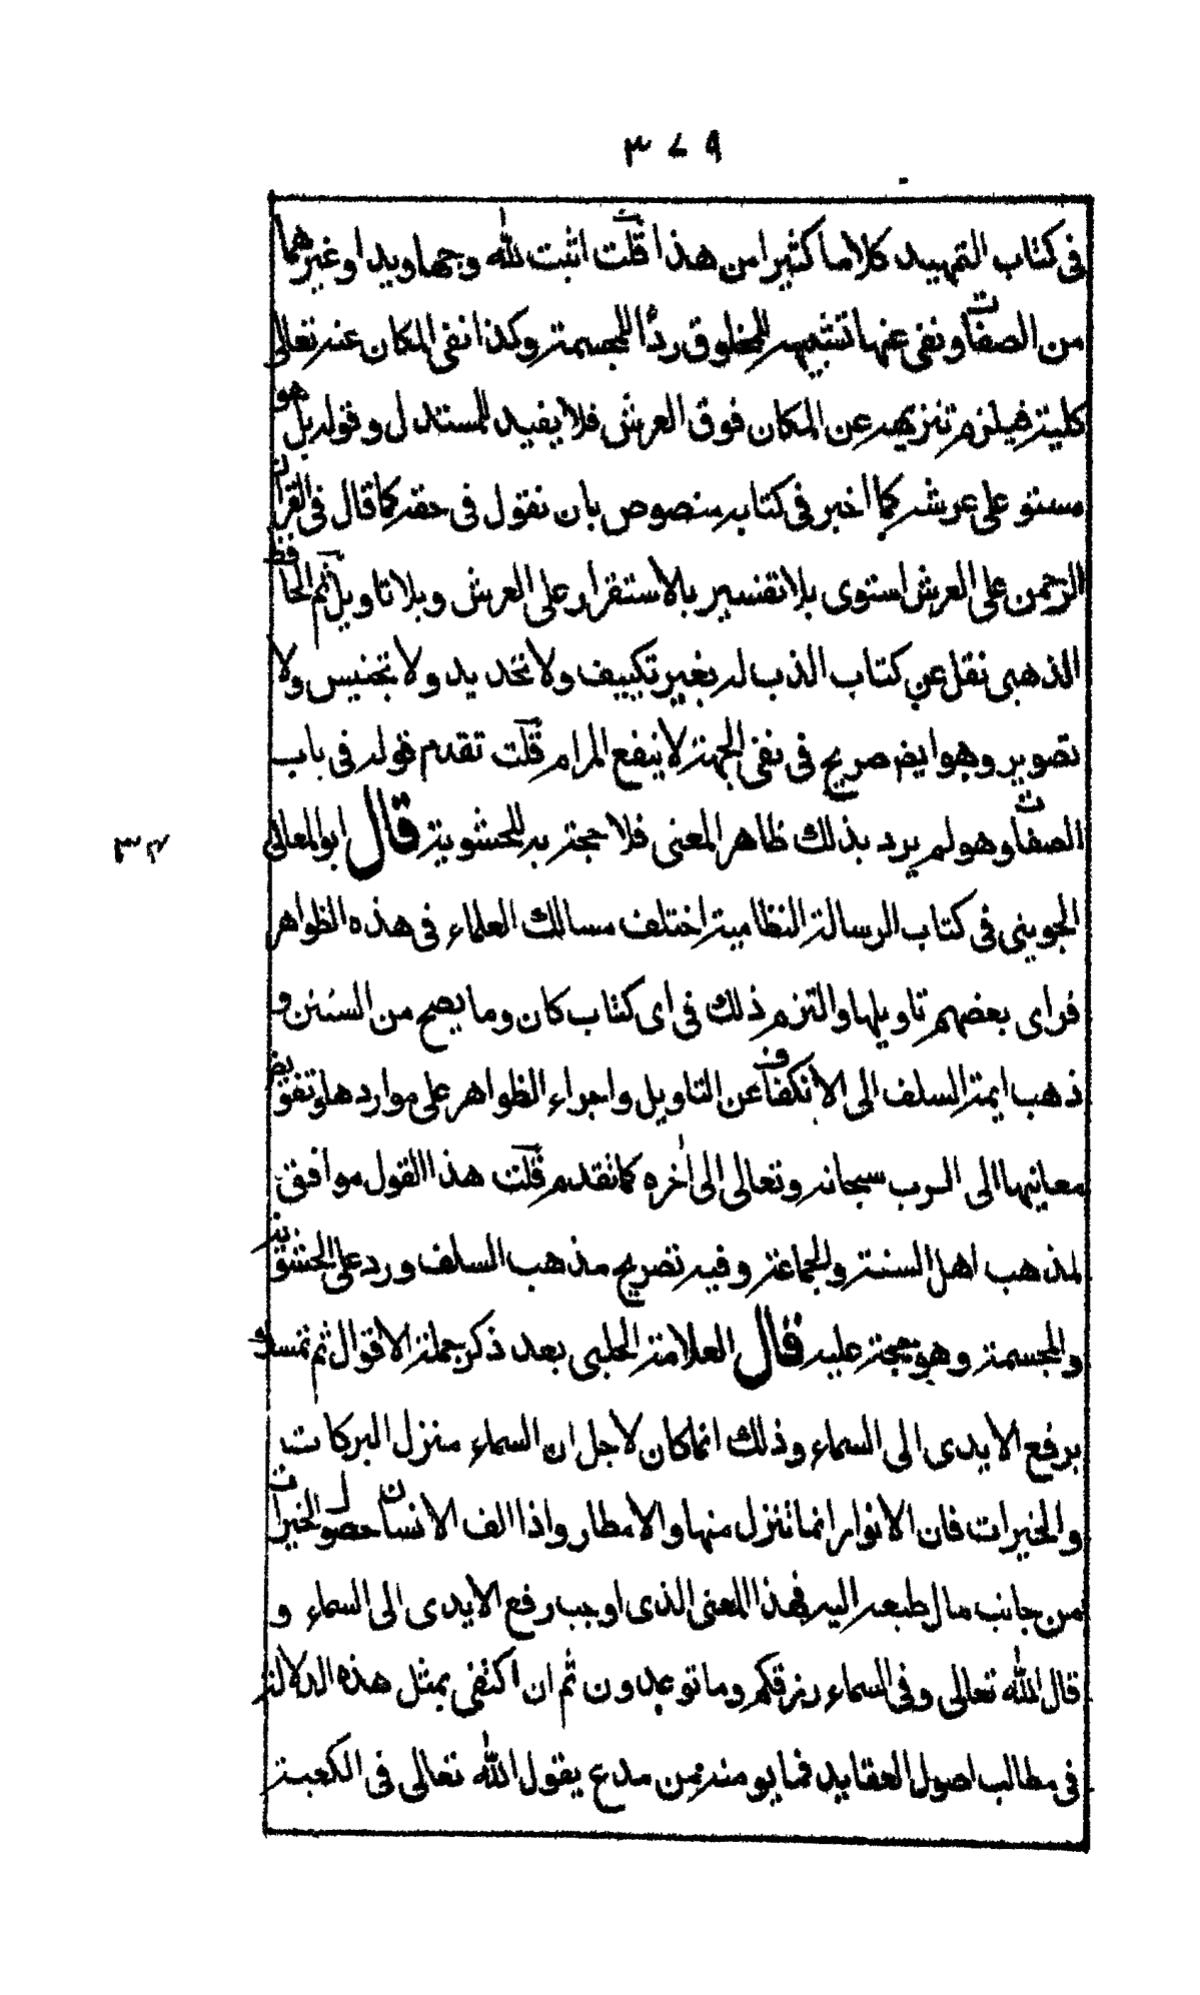 ٣٧٩
فى كتاب التمهيد كلاما كثيرا من هذا قلت اثبت لله وجها ويدا وغيرهما
من الصفات ونفى عنها تشبيهه للمخلوق ردا للمجسمة وكذا نفى المكان عنه تعالى
كلية فيلزم تنزيهه عن المكان فوق العرش فلا يفيد للمستدل وقوله بل هو
مستو على عرشه كما اخبر فى كتابه منصوص بان نقول فى حقه كما قال فى القران
الرحمن على العرش استوى بلا تفسير بالاستقرار على العرش وبلا تاويل ثم الحافظ
الذهبى نقل عن كتاب الذب له بغير تكييف ولا تحديد ولا تجنيس ولا
تصوير وهو ايضم صريح فى نفى الجهة لا ينفع المرام قلت تقدم قوله فى باب
الصفات وهو لم يرد بذلك ظاهر المعنى فلا حجة به للحشوية قال ابو المعالى
٣٤
الجوينى فى كتاب الرسالة النظامية اختلف مسالك العلماء فى هذه الظواهر
فراى بعضهم تاويلها والتزم ذلك فى اى كتاب كان وما يصح من السنن و
ذهب ايمة السلف الى الانكفاف عن التاويل واجراء الظواهر على مواردها وتفويض
معانيها الى الرب سبحانه وتعالى الى اخره كما تقدم قلت هذا القول موافق
لمذهب اهل السنة والجماعة وفيه تصريح مذهب السلف ورد على الحشوية
والمجسمة وهو حجة عليه قال العلامة الحلبى بعد ذكر جملة الاقوال ثم تمسك
برفع الايدى الى السماء وذلك انما كان لاجل ان السماء منزل البركات
والخيرات فان الانوار انما تنزل منها والامطار واذا الف الانسان حصول الخيرات
من جانب مال طبعه اليه فهذا المعنى الذى اوجب رفع الايدى الى السماء و
قال الله تعالى وفى السماء رزقكم وما توعدون ثم ان اكتفى بمثل هذه الدلالة
فى مطالب اصول العقايد فما يومنه من مدع يقول الله تعالى فى الكعبة